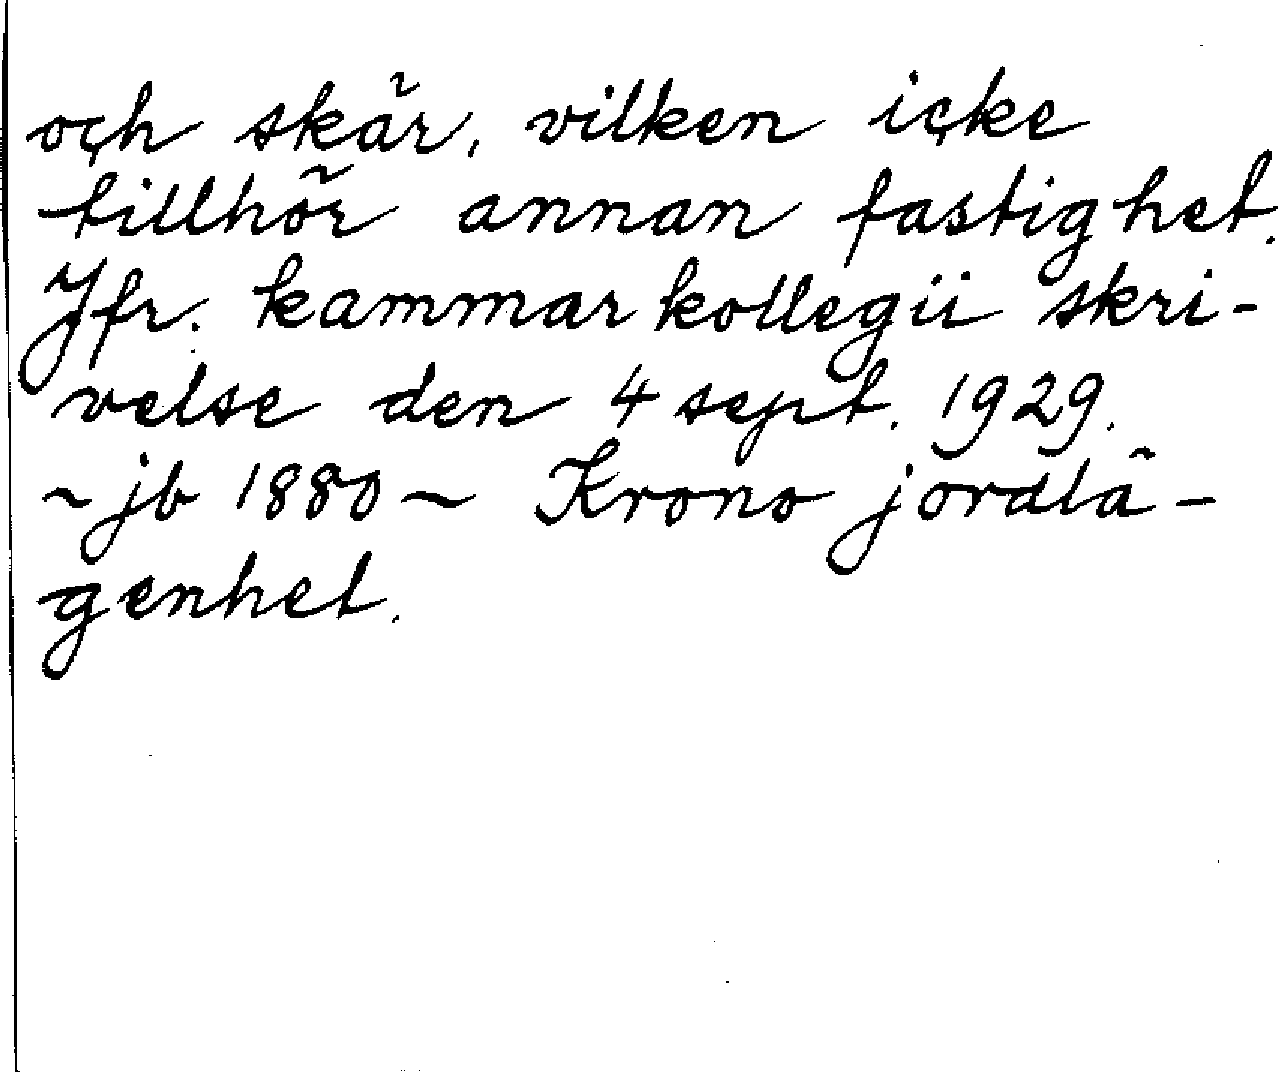 och skär, vilken icke
tillhör annan fastighet.
Jfr. kammarkollegii skri-
velse den 4 sept. 1929.
~ jb 1880 ~ Krono jordlä-
genhet.